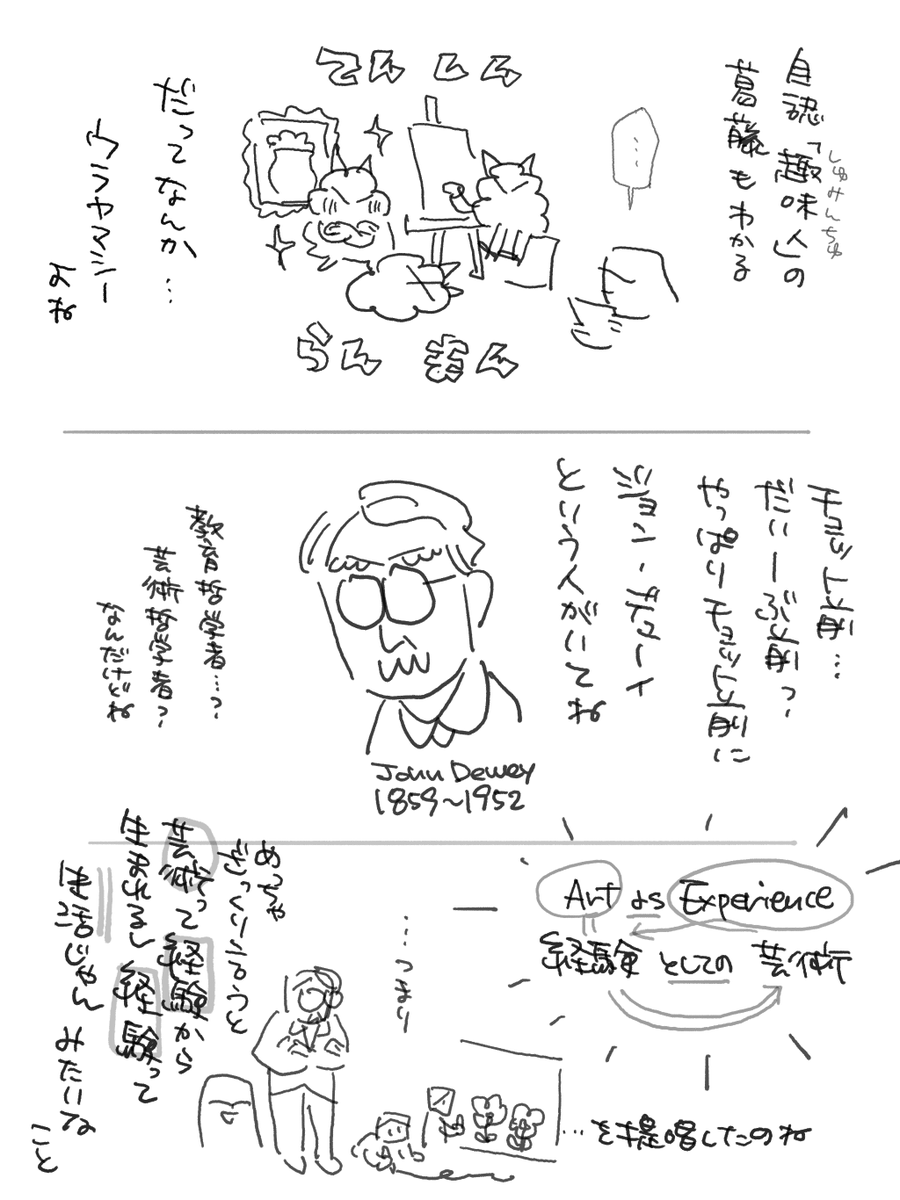 自認「趣味人」の
しゅみんちゅ
葛藤もわかる
…
てん しん
らん まん
だってなんか…
ウラヤマシー
よね
チョット前…
だいーぶ前?
やっぱりチョット前に
ジョン・デューイ
という人がいてね
John Dewey
1859~1952
教育哲学者…?
芸術哲学者?
なんだけどね
Art as Experience
経験 としての 芸術
…を提唱したのね
…つまり
めっちゃ
ざっくり言うと
芸術って経験から
生まれるし経験って
生活じゃん みたいな
こと